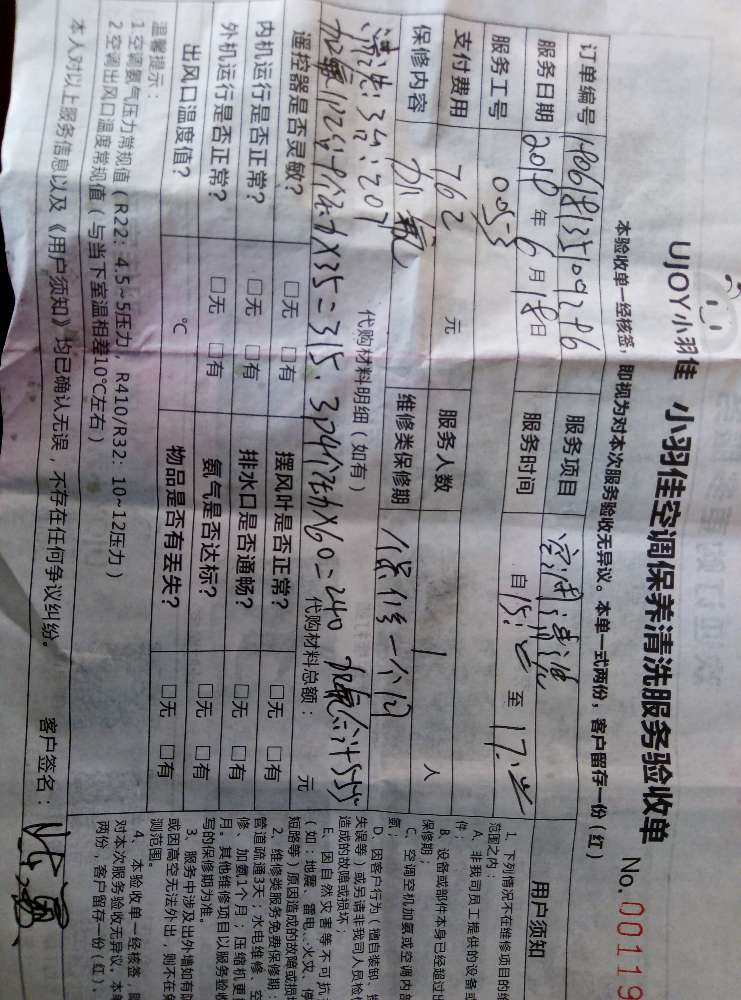 UJOY小羽佳 小羽佳空调保养清洗服务验收单
No.00119
本验收单一经核签，即视为对本次服务验收无异议。本单一式两份，客户留存一份（红）
订单编号
服务项目 空调清洗
服务日期 2018年6月18日
服务时间 自15: 至17:
服务工号 0053
支付费用 762元
服务人数 1人
保修内容 加氟
维修类保修期 保修一个月
代购材料明细（如有）
清洗:3台:207
加氟1 9个压力X35=315. 4个压力X60=240 加氟合计555
代购材料总额： 元
遥控器是否灵敏？ □无 □有
摆风叶是否正常？ □无 □有
内机运行是否正常？ □无 □有
排水口是否通畅？ □无 □有
外机运行是否正常？ □无 □有
氨气是否达标？ □无 □有
出风口温度值？ ℃
物品是否有丢失？ □无 □有
温馨提示：
1空调氨气压力常规值（R22：4.5~5压力，R410/R32：10~12压力）
2空调出风口温度常规值（与当下室温相差10℃左右）
本人对以上服务信息以及《用户须知》均已确认无误，不存在任何争议纠纷。
客户签名：
用户须知
1、下列情况不在维修项目的
范围之内：
A、非我司员工提供的设备或
件；
B、设备或部件本身已经超过
保修期；
C、空调空机加氨或空调内部
氨；
D、因客户行为（擅自装卸、
失误等）或另请非我司人员检修
造成的故障或损坏；
E、因自然灾害等不可抗
（如：地震、雷电、火灾、
短路等）原因造成的故障或损坏
2、维修类服务免费保修期：
管道疏通3天；水电维修、空
修、加氨1个月；压缩机更
月。其他维修项目以服务验收
写的保修期为准。
3、服务中涉及出外墙如有
或因高空无法外出，则不在
测范围。
4、本验收单一经核签，
对本次服务验收无异议、本单
两份，客户留存一份（红）、